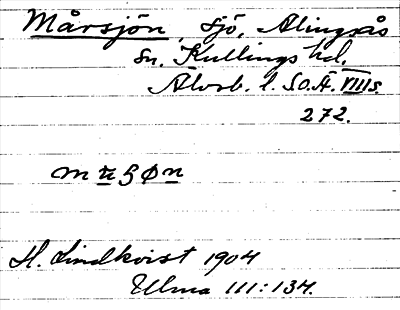 Mårsjön, sjö, Alingsås
sn. Kullings hd.
Älvsb. l. S.O.Ä. VIII s.
272.
H. Lindkvist 1904
Ulma 111:134.